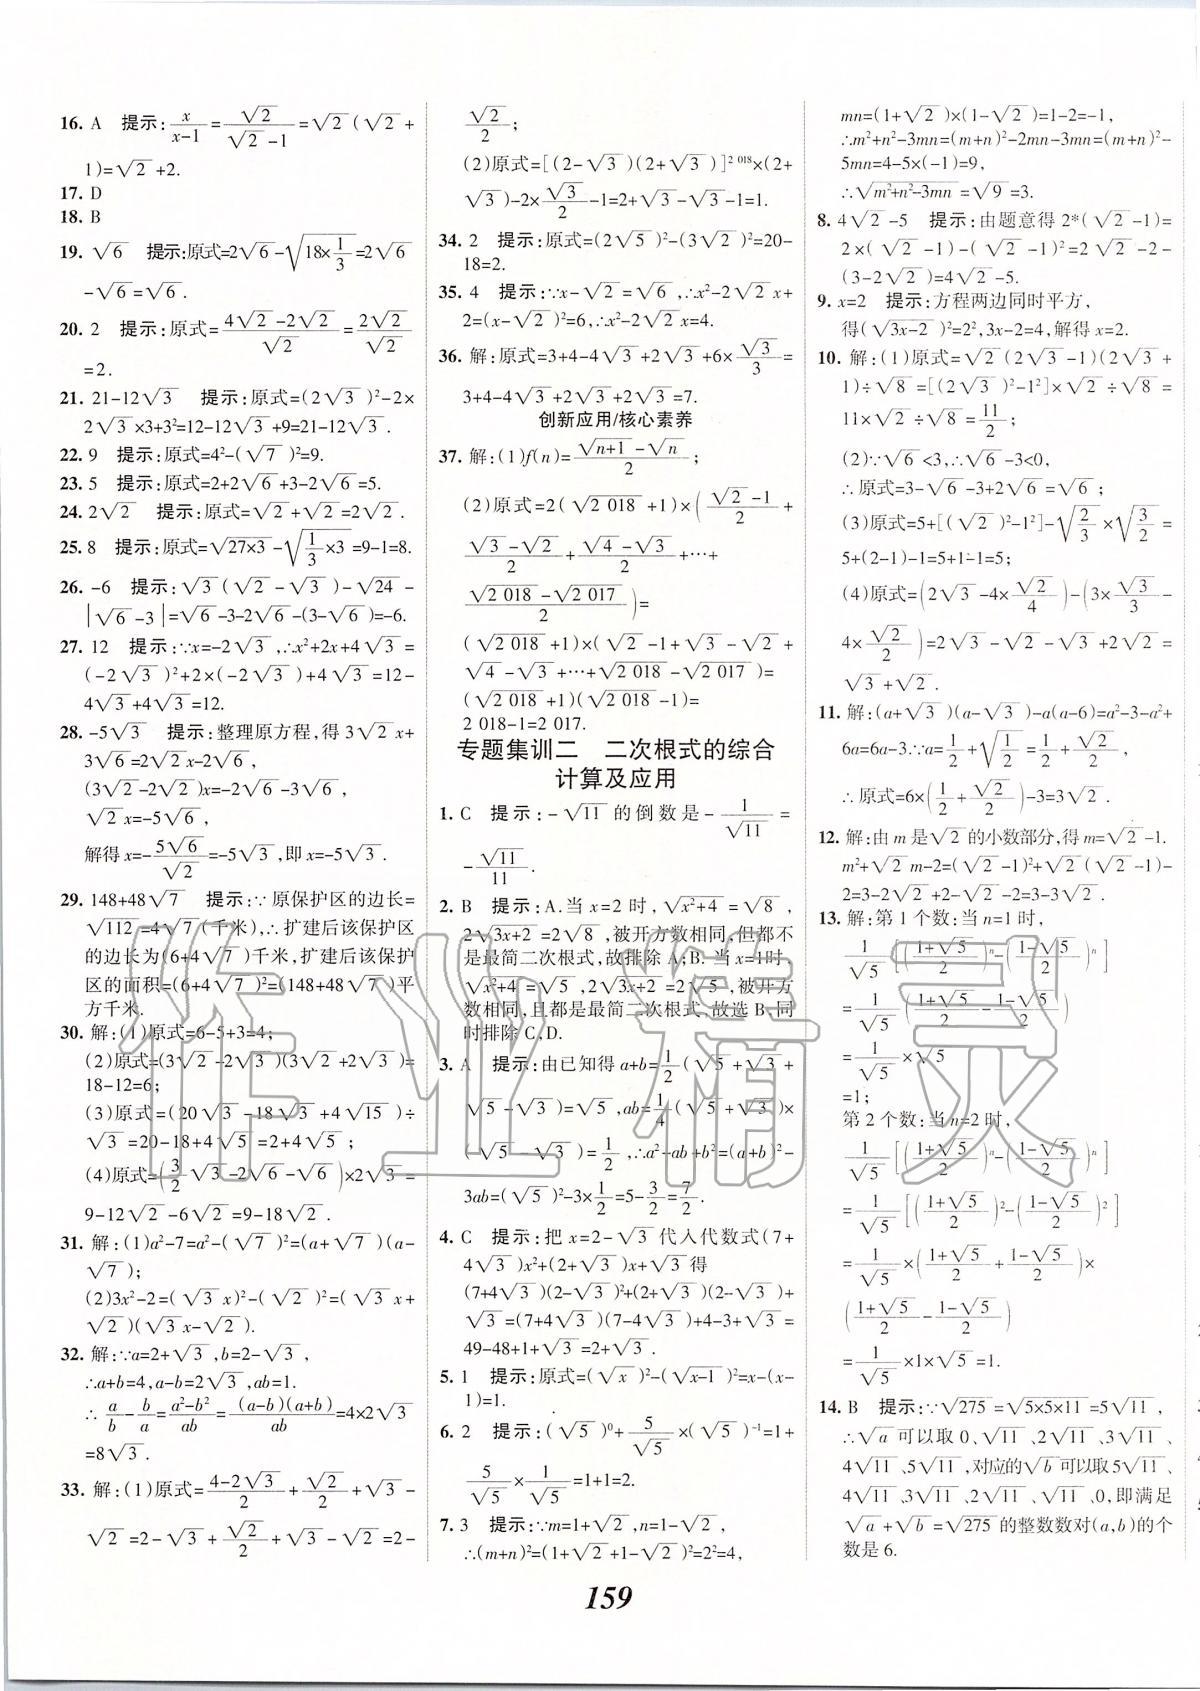 16. A 提示:x/(x-1)=√2/(√2-1)=√2(√2+
1)=√2+2.
17. D
18. B
19. √6 提示:原式=2√6-√(18×1/3)=2√6
-√6=√6.
20. 2 提示:原式=(4√2-2√2)/√2=2√2/√2
=2.
21. 21-12√3 提示:原式=(2√3)²-2×
2√3×3+3²=12-12√3+9=21-12√3.
22. 9 提示:原式=4²-(√7)²=9.
23. 5 提示:原式=2+2√6+3-2√6=5.
24. 2√2 提示:原式=√2+√2=2√2.
25. 8 提示:原式=√(27×3)-√(1/3×3)=9-1=8.
26. -6 提示:√3(√2-√3)-√24-
|√6-3|=√6-3-2√6-(3-√6)=-6.
27. 12 提示:∵x=-2√3,∴x²+2x+4√3=
(-2√3)²+2×(-2√3)+4√3=12-
4√3+4√3=12.
28. -5√3 提示:整理原方程,得3√2x+
3√6=2√2x-2√6,
(3√2-2√2)x=-2√6-3√6,
√2x=-5√6,
解得x=-5√6/√2=-5√3,即x=-5√3.
29. 148+48√7 提示:∵原保护区的边长=
√112=4√7(千米),∴扩建后该保护区
的边长为(6+4√7)千米,扩建后该保护
区的面积=(6+4√7)²=(148+48√7)平
方千米.
30. 解:(1)原式=6-5+3=4;
(2)原式=(3√2-2√3)(3√2+2√3)=
18-12=6;
(3)原式=(20√3-18√3+4√15)÷
√3=20-18+4√5=2+4√5;
(4)原式=(3/2√6-2√6-√6)×2√3=
9-12√2-6√2=9-18√2.
31. 解:(1)a²-7=a²-(√7)²=(a+√7)(a-
√7);
(2)3x²-2=(√3x)²-(√2)²=(√3x+
√2)(√3x-√2).
32. 解:∵a=2+√3,b=2-√3,
∴a+b=4,a-b=2√3,ab=1.
∴a/b-b/a=(a²-b²)/ab=(a-b)(a+b)/ab=4×2√3
=8√3.
33. 解:(1)原式=(4-2√3)/2+√2/2+√3-
√2=2-√3+√2/2+√3-√2=2-
√2/2;
(2)原式=[(2-√3)(2+√3)]²⁰¹⁸×(2+
√3)-2×√3/2-1=2+√3-√3-1=1.
34. 2 提示:原式=(2√5)²-(3√2)²=20-
18=2.
35. 4 提示:∵x-√2=√6,∴x²-2√2x+
2=(x-√2)²=6,∴x²-2√2x=4.
36. 解:原式=3+4-4√3+2√3+6×√3/3=
3+4-4√3+2√3+2√3=7.
创新应用/核心素养
37. 解:(1)f(n)=(√(n+1)-√n)/2;
(2)原式=2(√2 018+1)×((√2-1)/2+
(√3-√2)/2+(√4-√3)/2+…+
(√2 018-√2 017)/2)=
(√2 018+1)×(√2-1+√3-√2+
√4-√3+…+√2 018-√2 017)=
(√2 018+1)(√2 018-1)=
2 018-1=2 017.
专题集训二 二次根式的综合
计算及应用
1. C 提示:-√11的倒数是-1/√11=
-√11/11.
2. B 提示:A.当x=2时,√(x²+4)=√8,
2√(3x+2)=2√8,被开方数相同,但都不
是最简二次根式,故排除A;B.当x=1时,
√(x²+4)=√5,2√(3x+2)=2√5,被开方
数相同,且都是最简二次根式,故选B,同
时排除C,D.
3. A 提示:由已知得a+b=1/2(√5+√3+
√5-√3)=√5,ab=1/4(√5+√3)×
(√5-√3)=1/2,∴a²-ab+b²=(a+b)²-
3ab=(√5)²-3×1/2=5-3/2=7/2.
4. C 提示:把x=2-√3代入代数式(7+
4√3)x²+(2+√3)x+√3得
(7+4√3)(2-√3)²+(2+√3)(2-√3)+
√3=(7+4√3)(7-4√3)+4-3+√3=
49-48+1+√3=2+√3.
5. 1 提示:原式=(√x)²-(√(x-1))²=x-(x-
1)=1.
6. 2 提示:(√5)⁰+5/√5×(√5)⁻¹=1+
5/√5×1/√5=1+1=2.
7. 3 提示:∵m=1+√2,n=1-√2,
∴(m+n)²=(1+√2+1-√2)²=2²=4,
mn=(1+√2)×(1-√2)=1-2=-1,
∴m²+n²-3mn=(m+n)²-2mn-3mn=(m+n)²-
5mn=4-5×(-1)=9,
∴√(m²+n²-3mn)=√9=3.
8. 4√2-5 提示:由题意得2*(√2-1)=
2×(√2-1)-(√2-1)²=2√2-2-
(3-2√2)=4√2-5.
9. x=2 提示:方程两边同时平方,
得(√(3x-2))²=2²,3x-2=4,解得x=2.
10. 解:(1)原式=√2(2√3-1)(2√3+
1)÷√8=[(2√3)²-1²]×√2÷√8=
11×√2÷√8=11/2;
(2)∵√6<3,∴√6-3<0,
∴原式=3-√6-3+2√6=√6;
(3)原式=5+[(√2)²-1²]-√(2/3)×√(3/2)=
5+(2-1)-1=5+1-1=5;
(4)原式=(2√3-4×√2/4)-(3×√3/3-
4×√2/2)=2√3-√2-√3+2√2=
√3+√2.
11. 解:(a+√3)(a-√3)-a(a-6)=a²-3-a²+
6a=6a-3.∵a=1/2+√(1/2)=1/2+√2/2,
∴原式=6×(1/2+√2/2)-3=3√2.
12. 解:由m是√2的小数部分,得m=√2-1.
m²+√2m-2=(√2-1)²+√2(√2-1)-
2=3-2√2+2-√2-2=3-3√2.
13. 解:第1个数:当n=1时,
1/√5[((1+√5)/2)ⁿ-((1-√5)/2)ⁿ]
=1/√5((1+√5)/2-(1-√5)/2)
=1/√5×√5
=1;
第2个数:当n=2时,
1/√5[((1+√5)/2)ⁿ-((1-√5)/2)ⁿ]
=1/√5[((1+√5)/2)²-((1-√5)/2)²]
=1/√5((1+√5)/2+(1-√5)/2)×
((1+√5)/2-(1-√5)/2)
=1/√5×1×√5=1.
14. B 提示:∵√275=√(5×5×11)=5√11,
∴√a可以取0、√11、2√11、3√11、
4√11、5√11,对应的√b可以取5√11、
4√11、3√11、2√11、√11、0,即满足
√a+√b=√275的整数数对(a,b)的个
数是6.
159
作业精灵